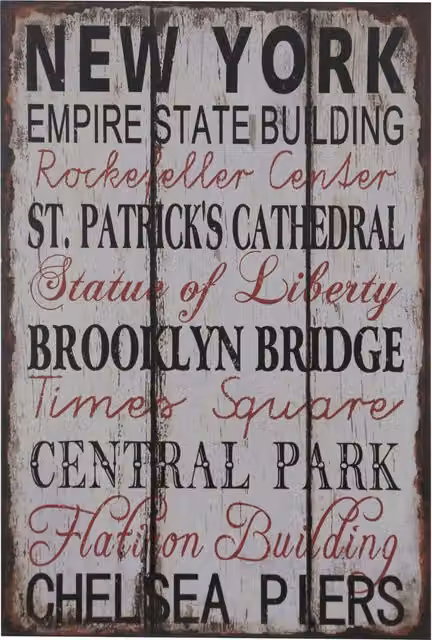 NEW YORK
EMPIRE STATE BUILDING
Rockefeller Center
ST. PATRICK'S CATHEDRAL
Statue of Liberty
BROOKLYN BRIDGE
Times Square
CENTRAL PARK
Flatiron Building
CHELSEA PIERS